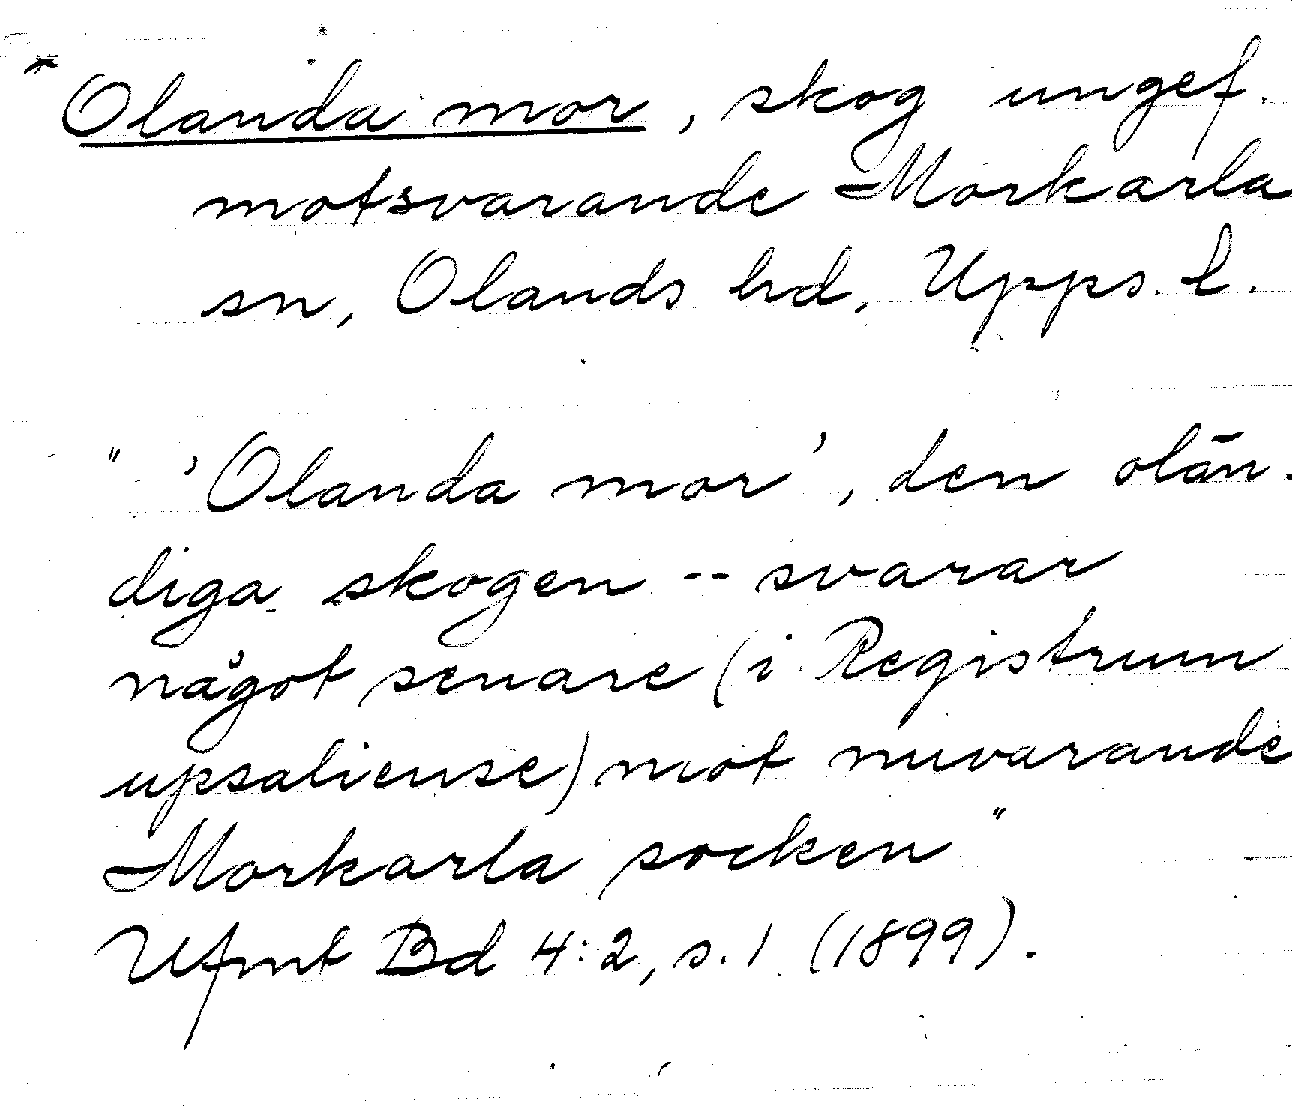 * Olanda mor, skog ungef.
motsvarande Morkarla
sn, Olands hd, Upps. l.
" 'Olanda mor', den olän-
diga skogen -- svarar
något senare (i Registrum
upsaliense) mot nuvarande
Morkarla socken"
Ufmt Bd 4:2, s. 1 (1899).